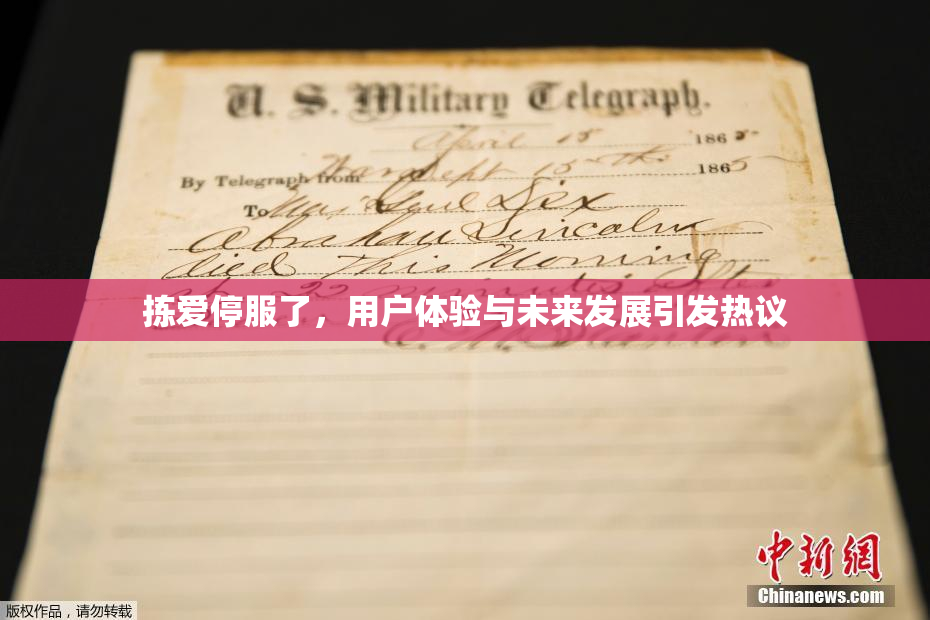 U. S. Military Telegraph.
April 15 1865
By Telegraph from War Dept 15th 1865
To Maj Genl Dix
Abraham Lincoln
died This Morning
22 minutes after
拣爱停服了，用户体验与未来发展引发热议
中新网
Chinanews.com
版权作品，请勿转载